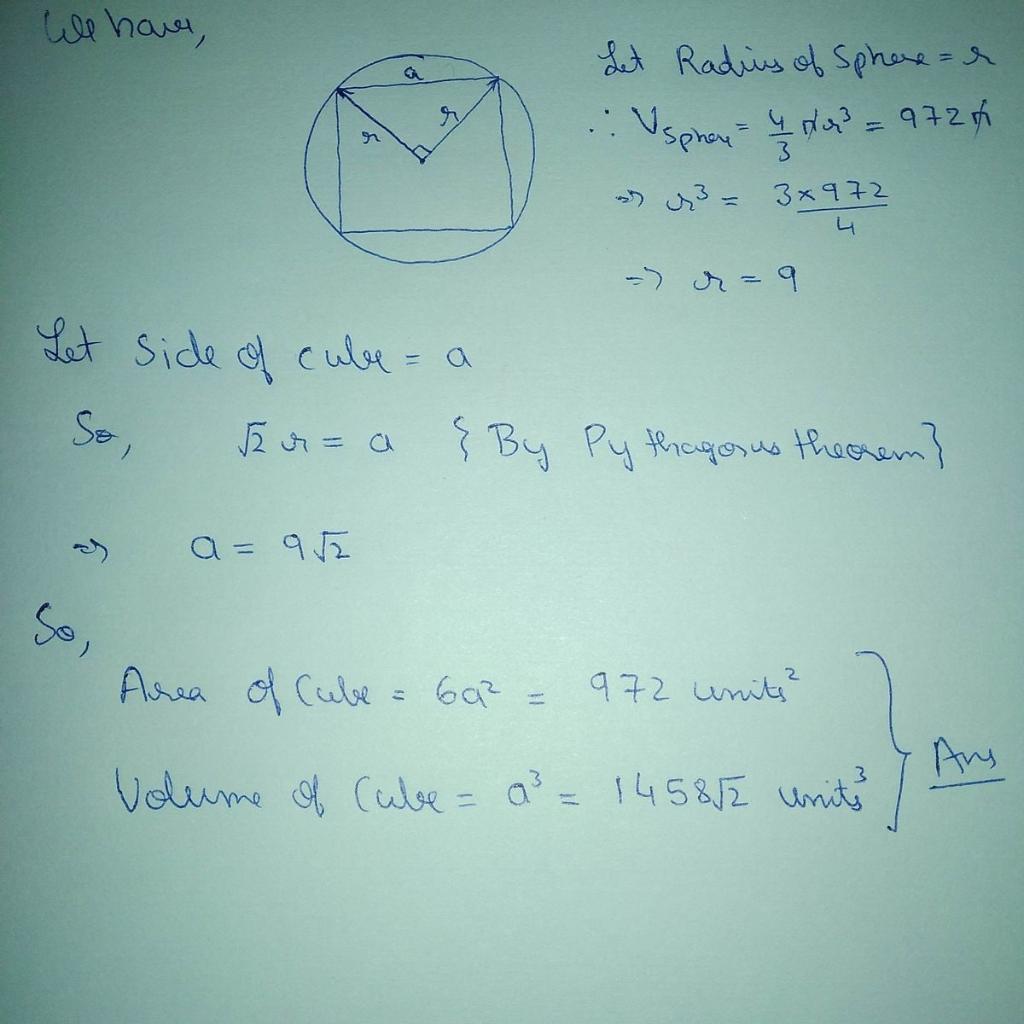 We have,
a
r
r
Let Radius of Sphere = r
∴ V Sphere = 4/3 πr³ = 972π
⇒ r³ = 3×972/4
⇒ r = 9
Let Side of cube = a
So, √2 r = a { By Pythagorus theorem }
⇒ a = 9√2
So,
Area of Cube = 6a² = 972 units²
Volume of Cube = a³ = 1458√2 units³
Ans